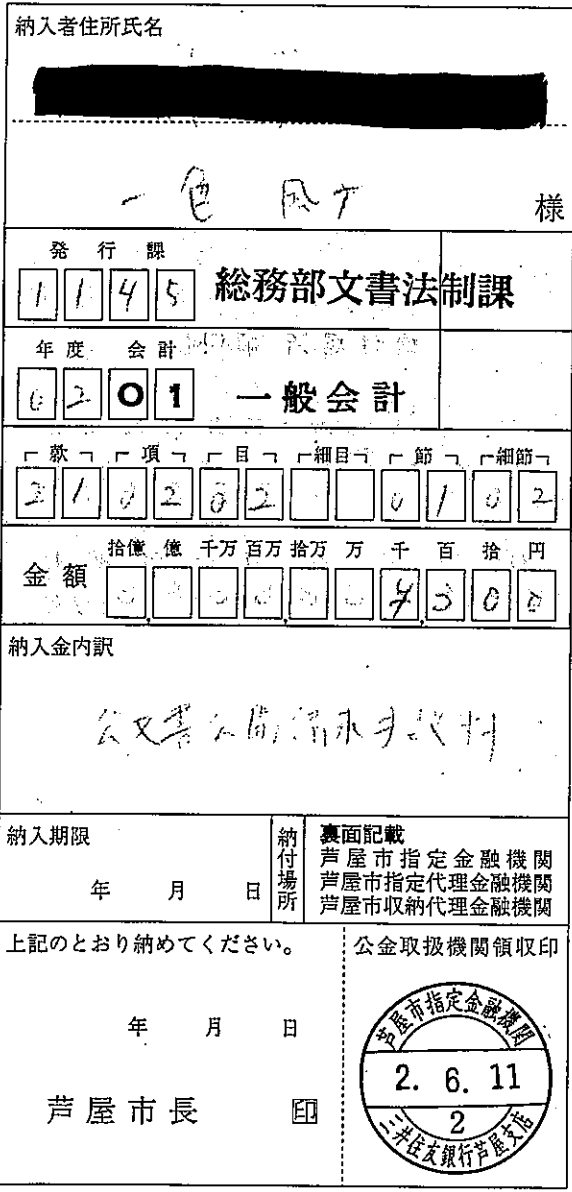 納入者住所氏名
一色 風子 様
発行課
1145 総務部文書法制課
年度 会計
0201 一般会計
款 項 目 細目 節 細節
21 02 02 01 02
拾億 億 千万 百万 拾万 万 千 百 拾 円
金額 0 0 0 0 0 0 4 3 0 0
納入金内訳
公文書公開請求手数料
納入期限
年 月 日
納付場所
裏面記載
芦屋市指定金融機関
芦屋市指定代理金融機関
芦屋市収納代理金融機関
上記のとおり納めてください。
年 月 日
芦屋市長 印
公金取扱機関領収印
芦屋市指定金融機関
2. 6. 11
2
三井住友銀行芦屋支店